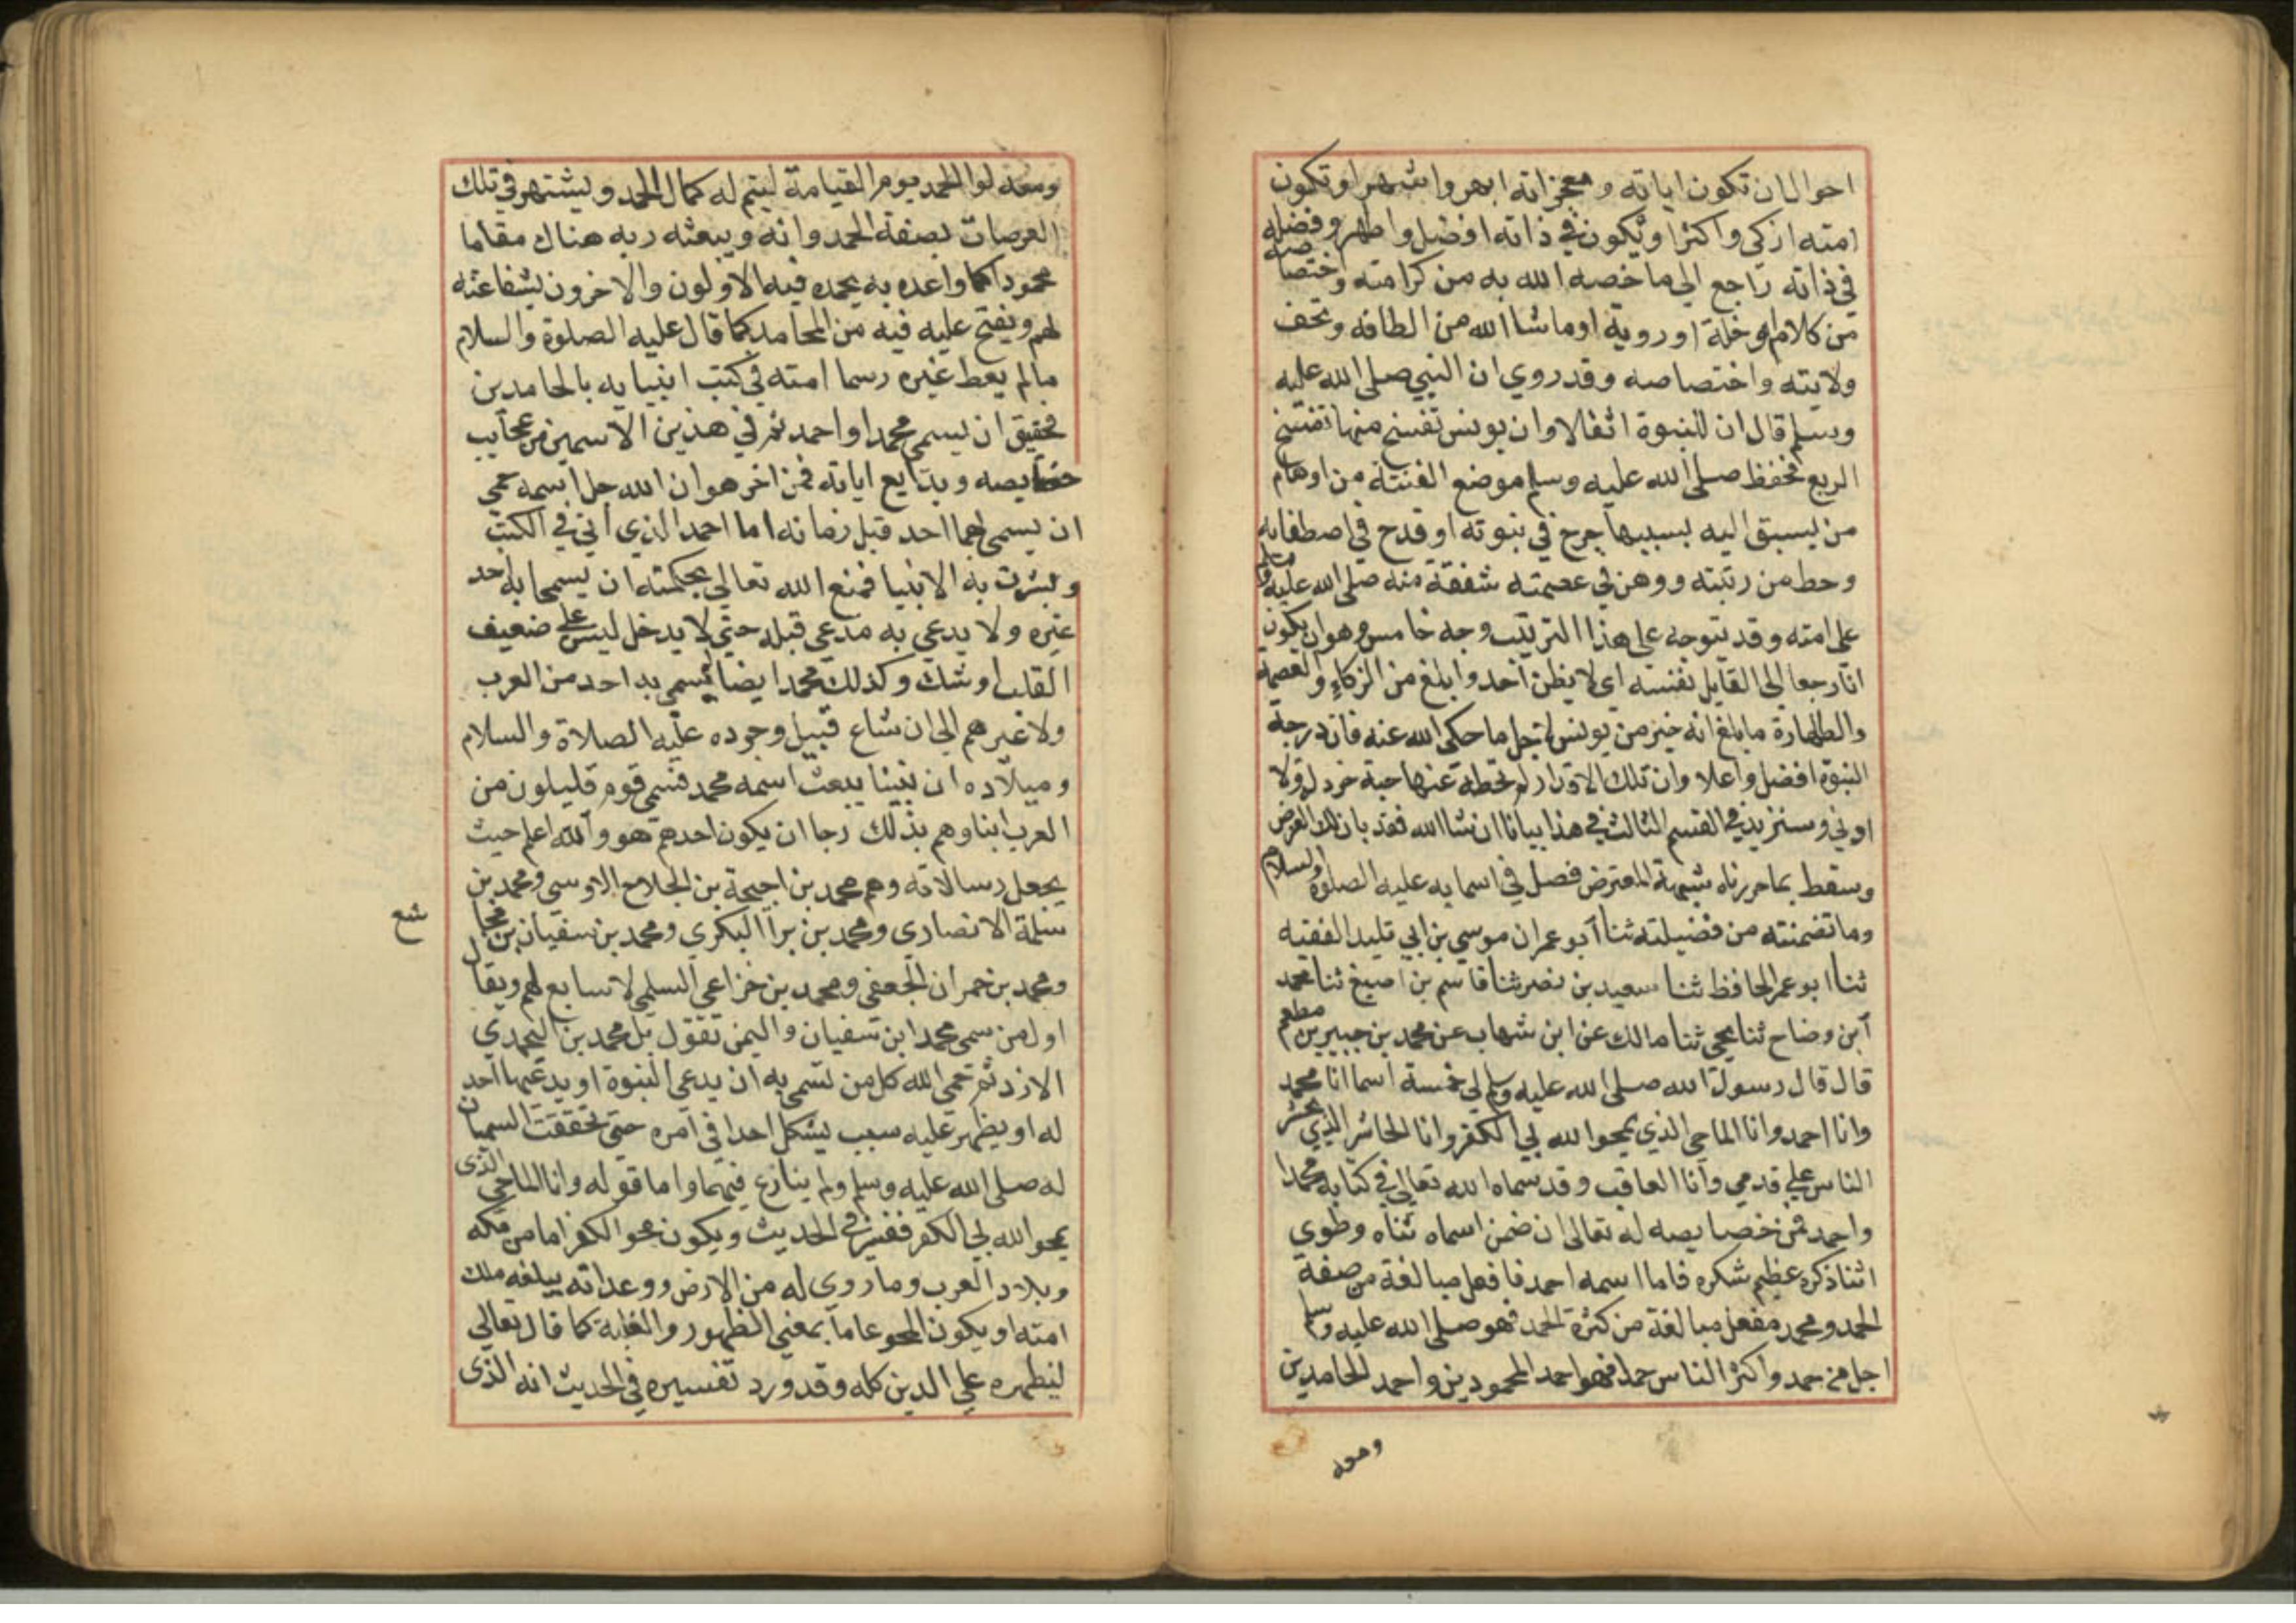 احوال ان تكون اياته ومعجزاته ابهر واشهر او تكون
امته ازكى واكثر او يكون في ذاته افضل واطهر وفضله
في ذاته راجع الى ما خصه الله به من كرامته واختصاصه
من كلام او خلة او روية او ما شا الله من الطافه وتحف
ولايته واختصاصه وقد روي ان النبي صلى الله عليه
وسلم قال ان للنبوة اثقالا وان يونس تفسخ منها تفسخ
الربع فحفظ صلى الله عليه وسلم موضع الفتنة من اوهام
من يسبق اليه بسببها جرح في نبوته او قدح في اصطفايه
وحط من رتبته ووهن في عصمته شفقة منه صلى الله عليه وسلم
على امته وقد يتوجه على هذا الترتيب وجه خامس وهو ان يكون
انا رجعا الى القايل نفسه اي لا يظن احد وابلغ من الزكاء والعصمة
والطهارة ما بلغ انه خير من يونس لاجل ما حكى الله عنه فان درجة
النبوة افضل واعلا وان تلك الاقدار لم تحطه عنها حبة خردل ولا
ادنى وسنزيد في القسم الثالث في هذا بيانا ان شا الله فقد بان لك الغرض
وسقط بما حررناه شبهة المعترض فصل في اسمايه عليه الصلوة والسلام
وما تضمنته من فضيلته ثنا ابو عمران موسى بن ابي تليد الفقيه
ثنا ابو عمر الحافظ ثنا سعيد بن نصر ثنا قاسم بن اصبغ ثنا محمد
ابن وضاح ثنا يحيى ثنا مالك عن ابن شهاب عن محمد بن جبير بن مطعم
قال قال رسول الله صلى الله عليه وسلم لي خمسة اسما انا محمد
وانا احمد وانا الماحي الذي يمحوا الله بي الكفر وانا الحاشر الذي يحشر
الناس على قدمي وانا العاقب وقد سماه الله تعالى في كتابه محمدا
واحمد فمن خصايصه له تعالى ان ضمن اسماه ثناه وطوى
اثنا ذكره عظيم شكره فاما اسمه احمد فافعل مبالغة من صفة
الحمد ومحمد مفعل مبالغة من كثرة الحمد فهو صلى الله عليه وسلم
اجل من حمد واكثر الناس حمدا فهو احمد المحمودين واحمد الحامدين
ومعه
ومعه لوا الحمد يوم القيامة ليتم له كمال الحمد ويشتهر في تلك
العرصات بصفة الحمد وانه ويبعثه ربه هناك مقاما
محمودا كما واعده به يحمده فيه الاولون والاخرون بشفاعته
لهم ويفتح عليه فيه من المحامد كما قال عليه الصلوة والسلام
ما لم يعط غيره وسما امته في كتب انبيايه بالحامدين
فحقيق ان يسمى محمدا واحمد ثم في هذين الاسمين من عجايب
خصايصه وبدايع اياته فن اخر هو ان الله جل اسمه حمى
ان يسمى بهما احد قبل زمانه اما احمد الذي اتى في الكتب
وبشرت به الانبيا فمنع الله تعالى بحكمته ان يسما به احد
غيره ولا يدعى به مدعي قبله حتى لا يدخل لبس على ضعيف
القلب او شك وكذلك محمد ايضا لم يسمى به احد من العرب
ولا غيرهم الى ان شاع قبيل وجوده عليه الصلاة والسلام
وميلاده ان نبينا يبعث اسمه محمد فسمى قوم قليلون من
العرب ابناوهم بذلك رجا ان يكون احدهم هو والله اعلم حيث
يجعل رسالاته وهم محمد بن احيحة بن الجلاح الاوسي ومحمد بن
سلمة الانصاري ومحمد بن برا البكري ومحمد بن سفيان بن مجال
شع
ومحمد بن حمران الجعفي ومحمد بن خزاعي السلمي لا سابع لهم ويقال
اول من سمى محمدا ابن سفيان واليمن تقول بل محمد بن اليحمدي
الازد ثم حمى الله كل من تسمى به ان يدعي النبوة او يدعيها احد
له او يظهر عليه سبب يشكل احدا في امره حتى تحققت السميان
له صلى الله عليه وسلم ولم ينازع فيهما واما قوله وانا الماحي الذي
يمحو الله بي الكفر ففسر في الحديث ويكون محو الكفر اما من مكه
وبلاد العرب وما روي له من الارض ووعد انه يبلغه ملك
امته او يكون المحو عاما بمعنى الظهور والغلبة كما قال تعالى
ليظهره على الدين كله وقد ورد تفسيره في الحديث انه الذي